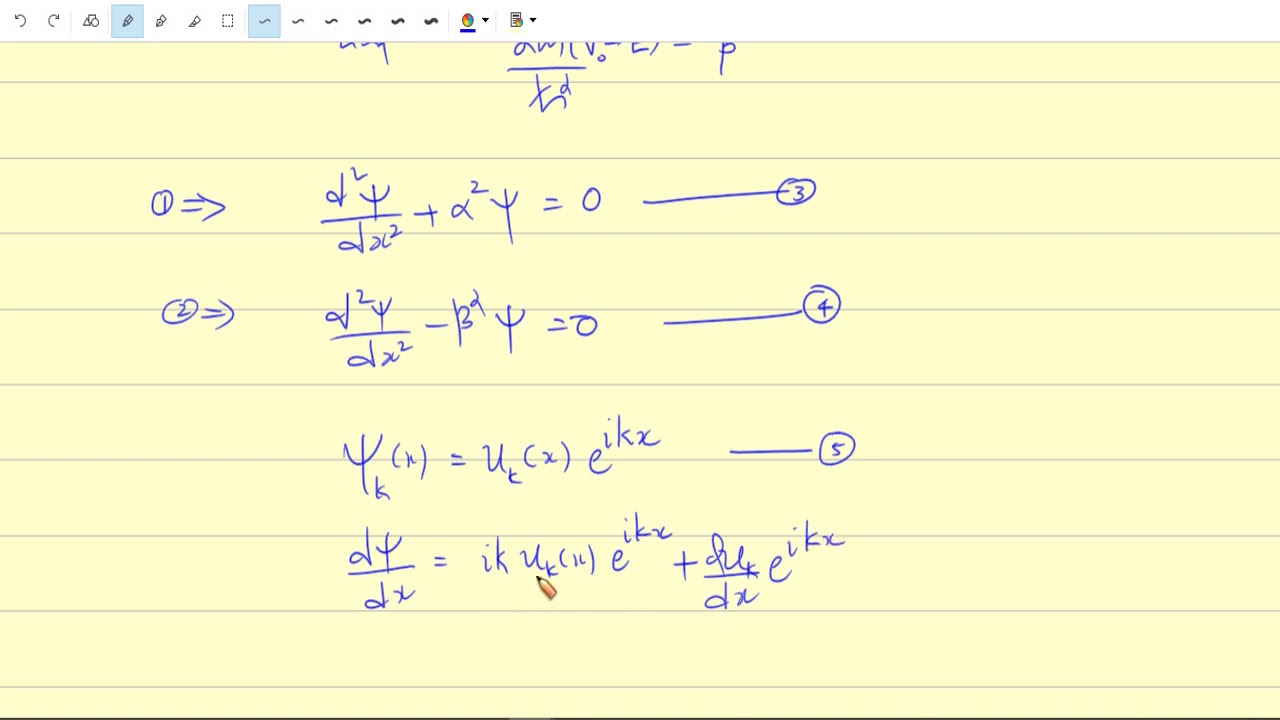 2m(V₀-E) = β
ħ²
① ⇒ d²ψ/dx² + α²ψ = 0 ——— ③
② ⇒ d²ψ/dx² - β²ψ = 0 ——— ④
ψₖ(x) = uₖ(x) e^{ikx} ——— ⑤
dψ/dx = ik uₖ(x) e^{ikx} + duₖ/dx e^{ikx}